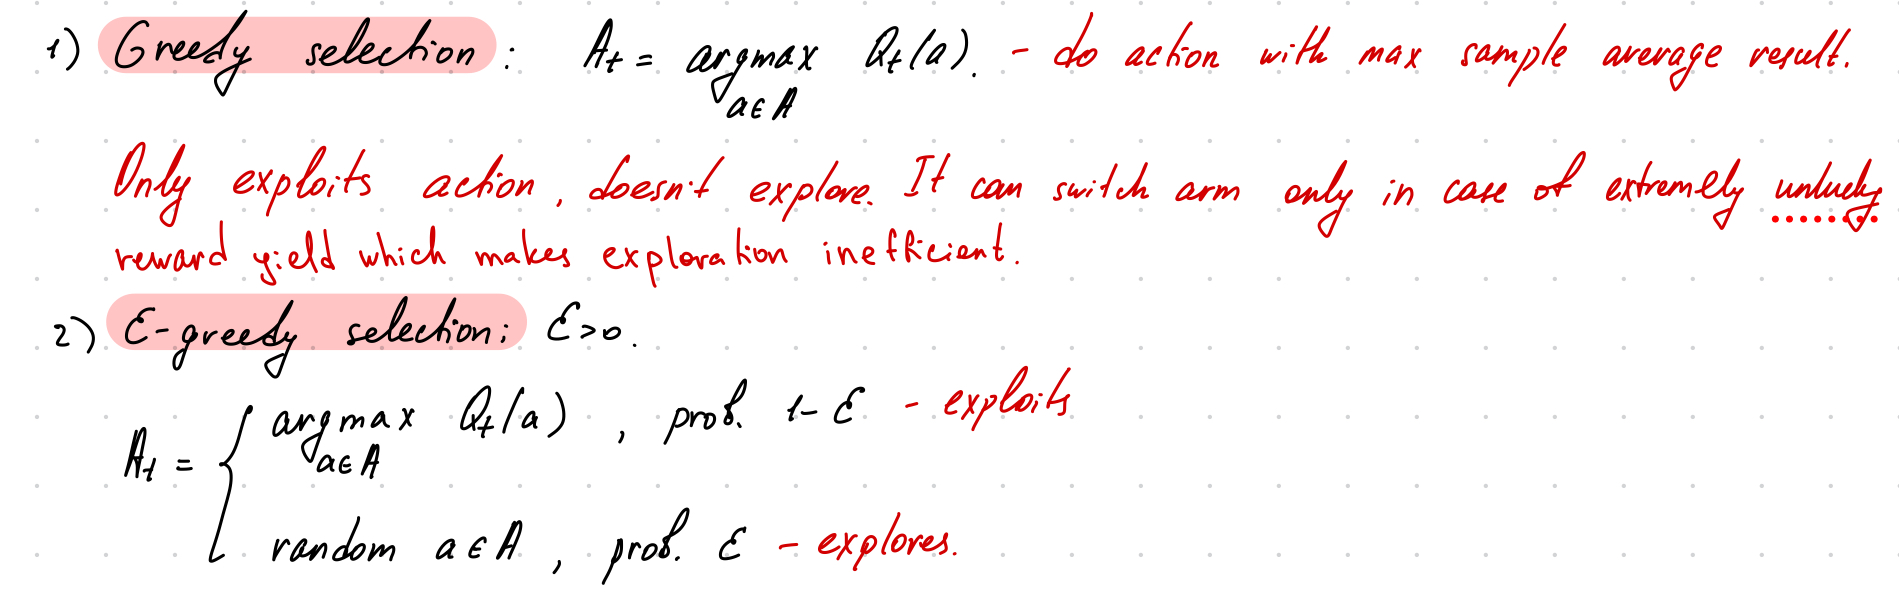 1) Greedy selection: At = argmax Qt(a). - do action with max sample average result.
a∈A
Only exploits action, doesn't explore. It can switch arm only in case of extremely unlucky
reward yield which makes exploration inefficient.
2) ε-greedy selection: ε>0.
argmax Qt(a), prob. 1-ε - exploits
a∈A
At = {
random a∈A, prob. ε - explores.